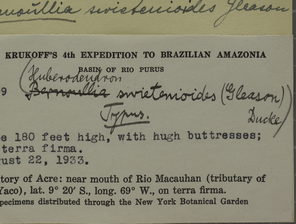 noullia swietenioides Gleason
KRUKOFF'S 4th EXPEDITION TO BRAZILIAN AMAZONIA
BASIN OF RIO PURUS
(Huberodendron
9 Bernoullia swietenioides (Gleason)
Typus. Ducke)
e 180 feet high, with hugh buttresses;
terra firma.
gust 22, 1933.
tory of Acre: near mouth of Rio Macauhan (tributary of
Yaco), lat. 9° 20' S., long. 69° W., on terra firma.
specimens distributed through the New York Botanical Garden